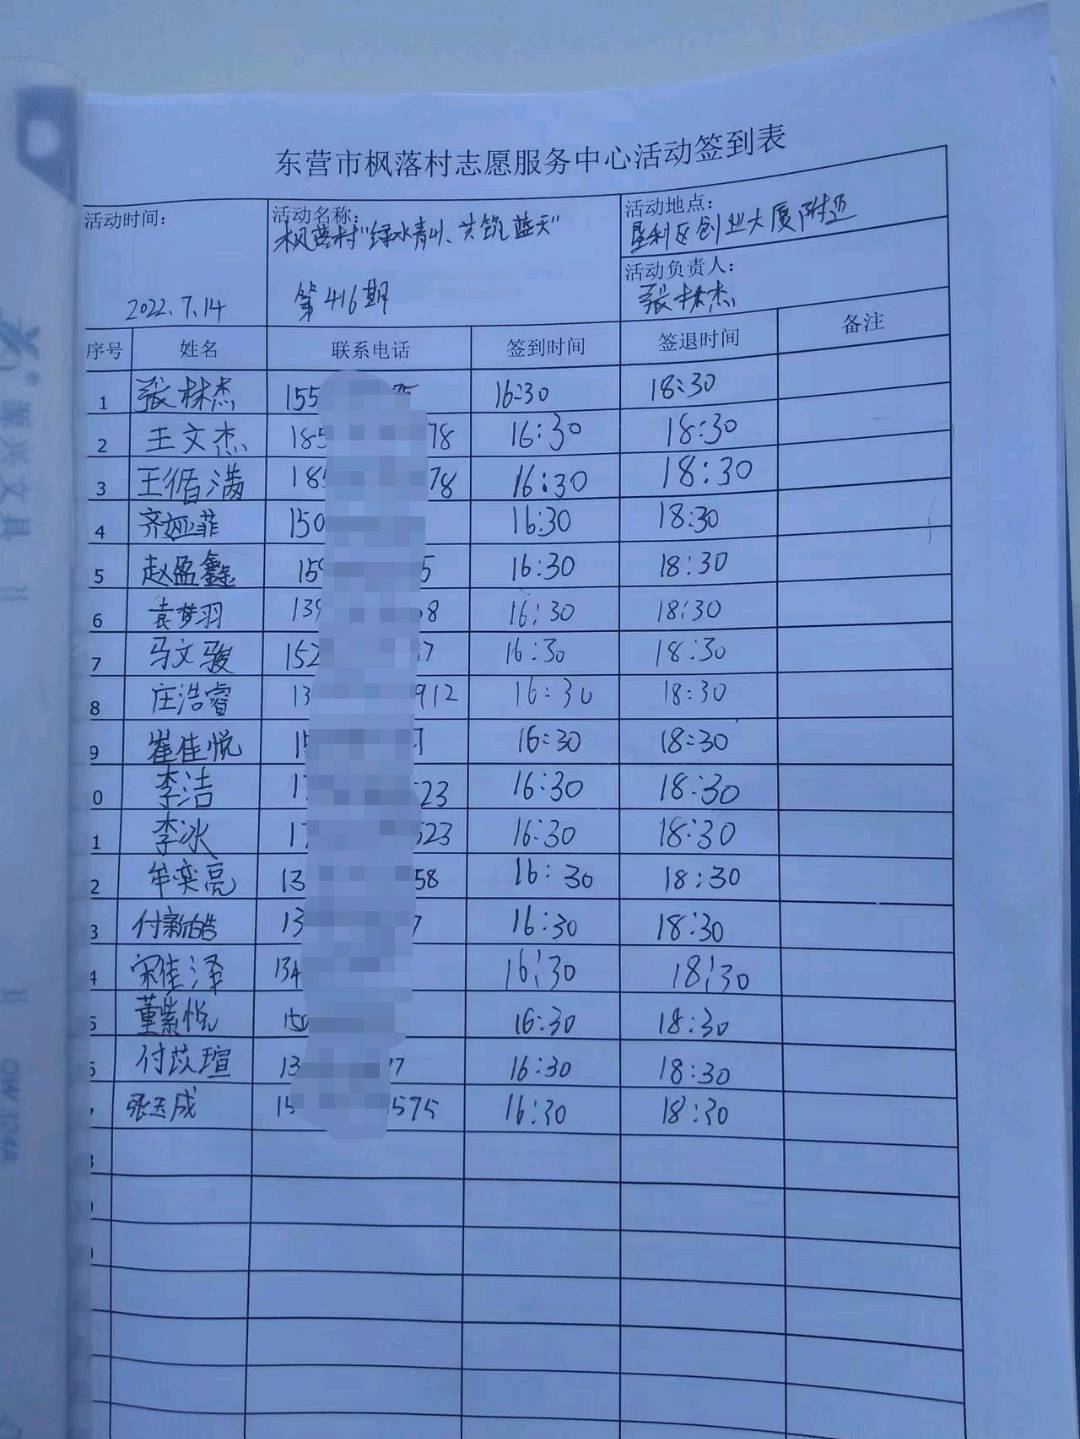 东营市枫落村志愿服务中心活动签到表
活动时间: 2022.7.14
活动名称: 枫落村"绿水青山、共筑蓝天" 第416期
活动地点: 垦利区创业大厦附近
活动负责人: 张林杰
序号 姓名 联系电话 签到时间 签退时间 备注
1 张林杰 155 75 16:30 18:30
2 王文杰 185 78 16:30 18:30
3 王循满 185 78 16:30 18:30
4 齐娅菲 150 16:30 18:30
5 赵盈鑫 159 5 16:30 18:30
6 袁梦羽 139 68 16:30 18:30
7 马文骏 152 7 16:30 18:30
8 庄浩睿 13 912 16:30 18:30
9 崔佳悦 15 16:30 18:30
0 李洁 17 523 16:30 18:30
1 李冰 17 523 16:30 18:30
2 牟奕亮 13 58 16:30 18:30
3 付新皓 13 7 16:30 18:30
4 宋佳泽 134 16:30 18:30
5 董紫悦 150 16:30 18:30
付苡瑄 13 77 16:30 18:30
张玉成 15 575 16:30 18:30
源兴文具
QW324A